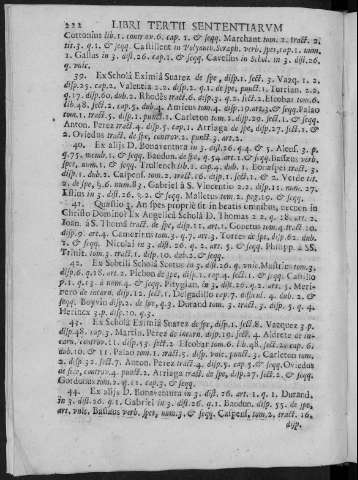 222 LIBRI TERTII SENTENTIARVM
Cottonius lib. 1. controv. 6. cap. 1. & seqq. Marchant tom. 2. tract. 2.
tit. 3. q. 1. & seqq. Castillent in Polyanth. Seraph. verb. spes, cap. 1. tom.
1. Gassus in 3. dist. 26. cap. 1. & seqq. Cavellus in Schol. in 3. dist. 26.
q. vnic.
39. Ex Scholâ Eximiâ Suarez de spe, disp. 1. sect. 3. Vazq. 1. 2.
disp. 23. cap. 2. Valentia 2. 2. disp. 2. q. 1. de spe, punct. 1. Turrian. 2. 2.
q. 17. disp. 60. dub. 2. Rhodès tract. 6. disp. 3. q. 2. sect. 1. Escobar tom. 6.
lib. 48. sect. 2. cap. 5. dub. 4. Amicus tom. 4. disp. 19. art. 3. & seqq. Palao
tom. 1. tract. 5. disp. 1. punct. 1. Carleton tom. 2. disp. 29. sect. 1. & seqq.
Anton. Perez tract. 4. disp. 5. cap. 1. Arriaga de spe, disp. 27. sect. 1. &
2. Oviedus tract. de spe, controv. 2. punct. 3. art. 2.
40. Ex alijs D. Bonaventura in 3. dist. 26. q. 4. & 5. Alens. 3. p.
q. 75. memb. 1. & seqq. Baudon. de spe, q. 54. art. 1. & seqq. Bassæus verb.
spes, num. 1. & seqq. Trullench lib. 1. cap. 4. dub. 1. Bonæspei tract. 3.
disp. 1. dub. 2. Caspens. tom. 2. tract. 16. disp. 1. sect. 1. & 2. Verde tit.
2. de spe, §. 6. num. 83. Gabriel à S. Vincentio 2. 2. disp. 11. num. 27.
Estius in 3. dist. 26. §. 2. & seqq. Malletus tom. 2. pag. 19. & seqq.
41. Quæstio 3. An spes propriè sit in beatis omnibus, necnon in
Christo Domino? Ex Angelicâ Scholâ D. Thomas 2. 2. q. 18. art. 2.
Joan. à S. Thoma tract. de spe, disp. 11. art. 1. Gonetus tom. 4. tract. 10.
disp. 9. art. 4. Camerien. tom. 3. q. 67. art. 3. Torres de spe, disp. 62. dub.
2. & seqq. Nicolai in 3. dist. 26. q. 2. art. 5. & seqq. Philipp. à SS.
Trinit. tom. 3. tract. 2. disp. 10. dub. 2. & seqq.
42. Ex Subtili Scholâ Scotus in 3. dist. 26. q. vnic. Mastrius tom. 3.
disp. 6. q. 18. art. 2. Pichon de spe, disp. 1. cap. 4. sect. 1. & seqq. Castillo
p. 1. q. 13. à num. 4. & seqq. Pitygian. in 3. dist. 26. q. 2. art. 5. Meri-
nero de incarn. disp. 12. sect. 1. Delgadillo cap. 7. dissent. 4. dub. 2. &
seqq. Boyvin disp. 2. de spe, q. 3. Durand tom. 3. tract. 3. disp. 5. q. 4.
Herincx 3. p. disp. 10. q. 3.
43. Ex Scholâ Eximiâ Suarez de spe, disp. 1. sect. 8. Vazquez 3. p.
disp. 48. cap. 3. Martin. Perez de incarn. disp. 19. sect. 4. Aldrete de in-
carn. controv. 11. disp. 53. sect. 2. Escobar tom. 6. lib. 48. sect. 2. cap. 6.
dub. 10. & 11. Palao tom. 1. tract. 5. disp. vnic. punct. 3. Carleton tom.
2. disp. 32. sect. 7. Anton. Perez tract. 4. disp. 5. cap. 5. & seqq. Oviedus
de fide, controv. 4. punct. 2. Arriaga tract. de spe, disp. 27. sect. 2. & seqq.
Gordonus tom. 2. q. 11. cap. 3. & seqq.
44. Ex alijs D. Bonaventura in 3. dist. 26. art. 1. q. 1. Durand.
in 3. dist. 26. q. 1. Gabriel in 3. dist. 26. q. 1. Baudun. disp. 55. de spe,
art. vnic. Bassæus verb. spes, num. 3. & seqq. Caspens. tom. 2. tract. 16.
disp.